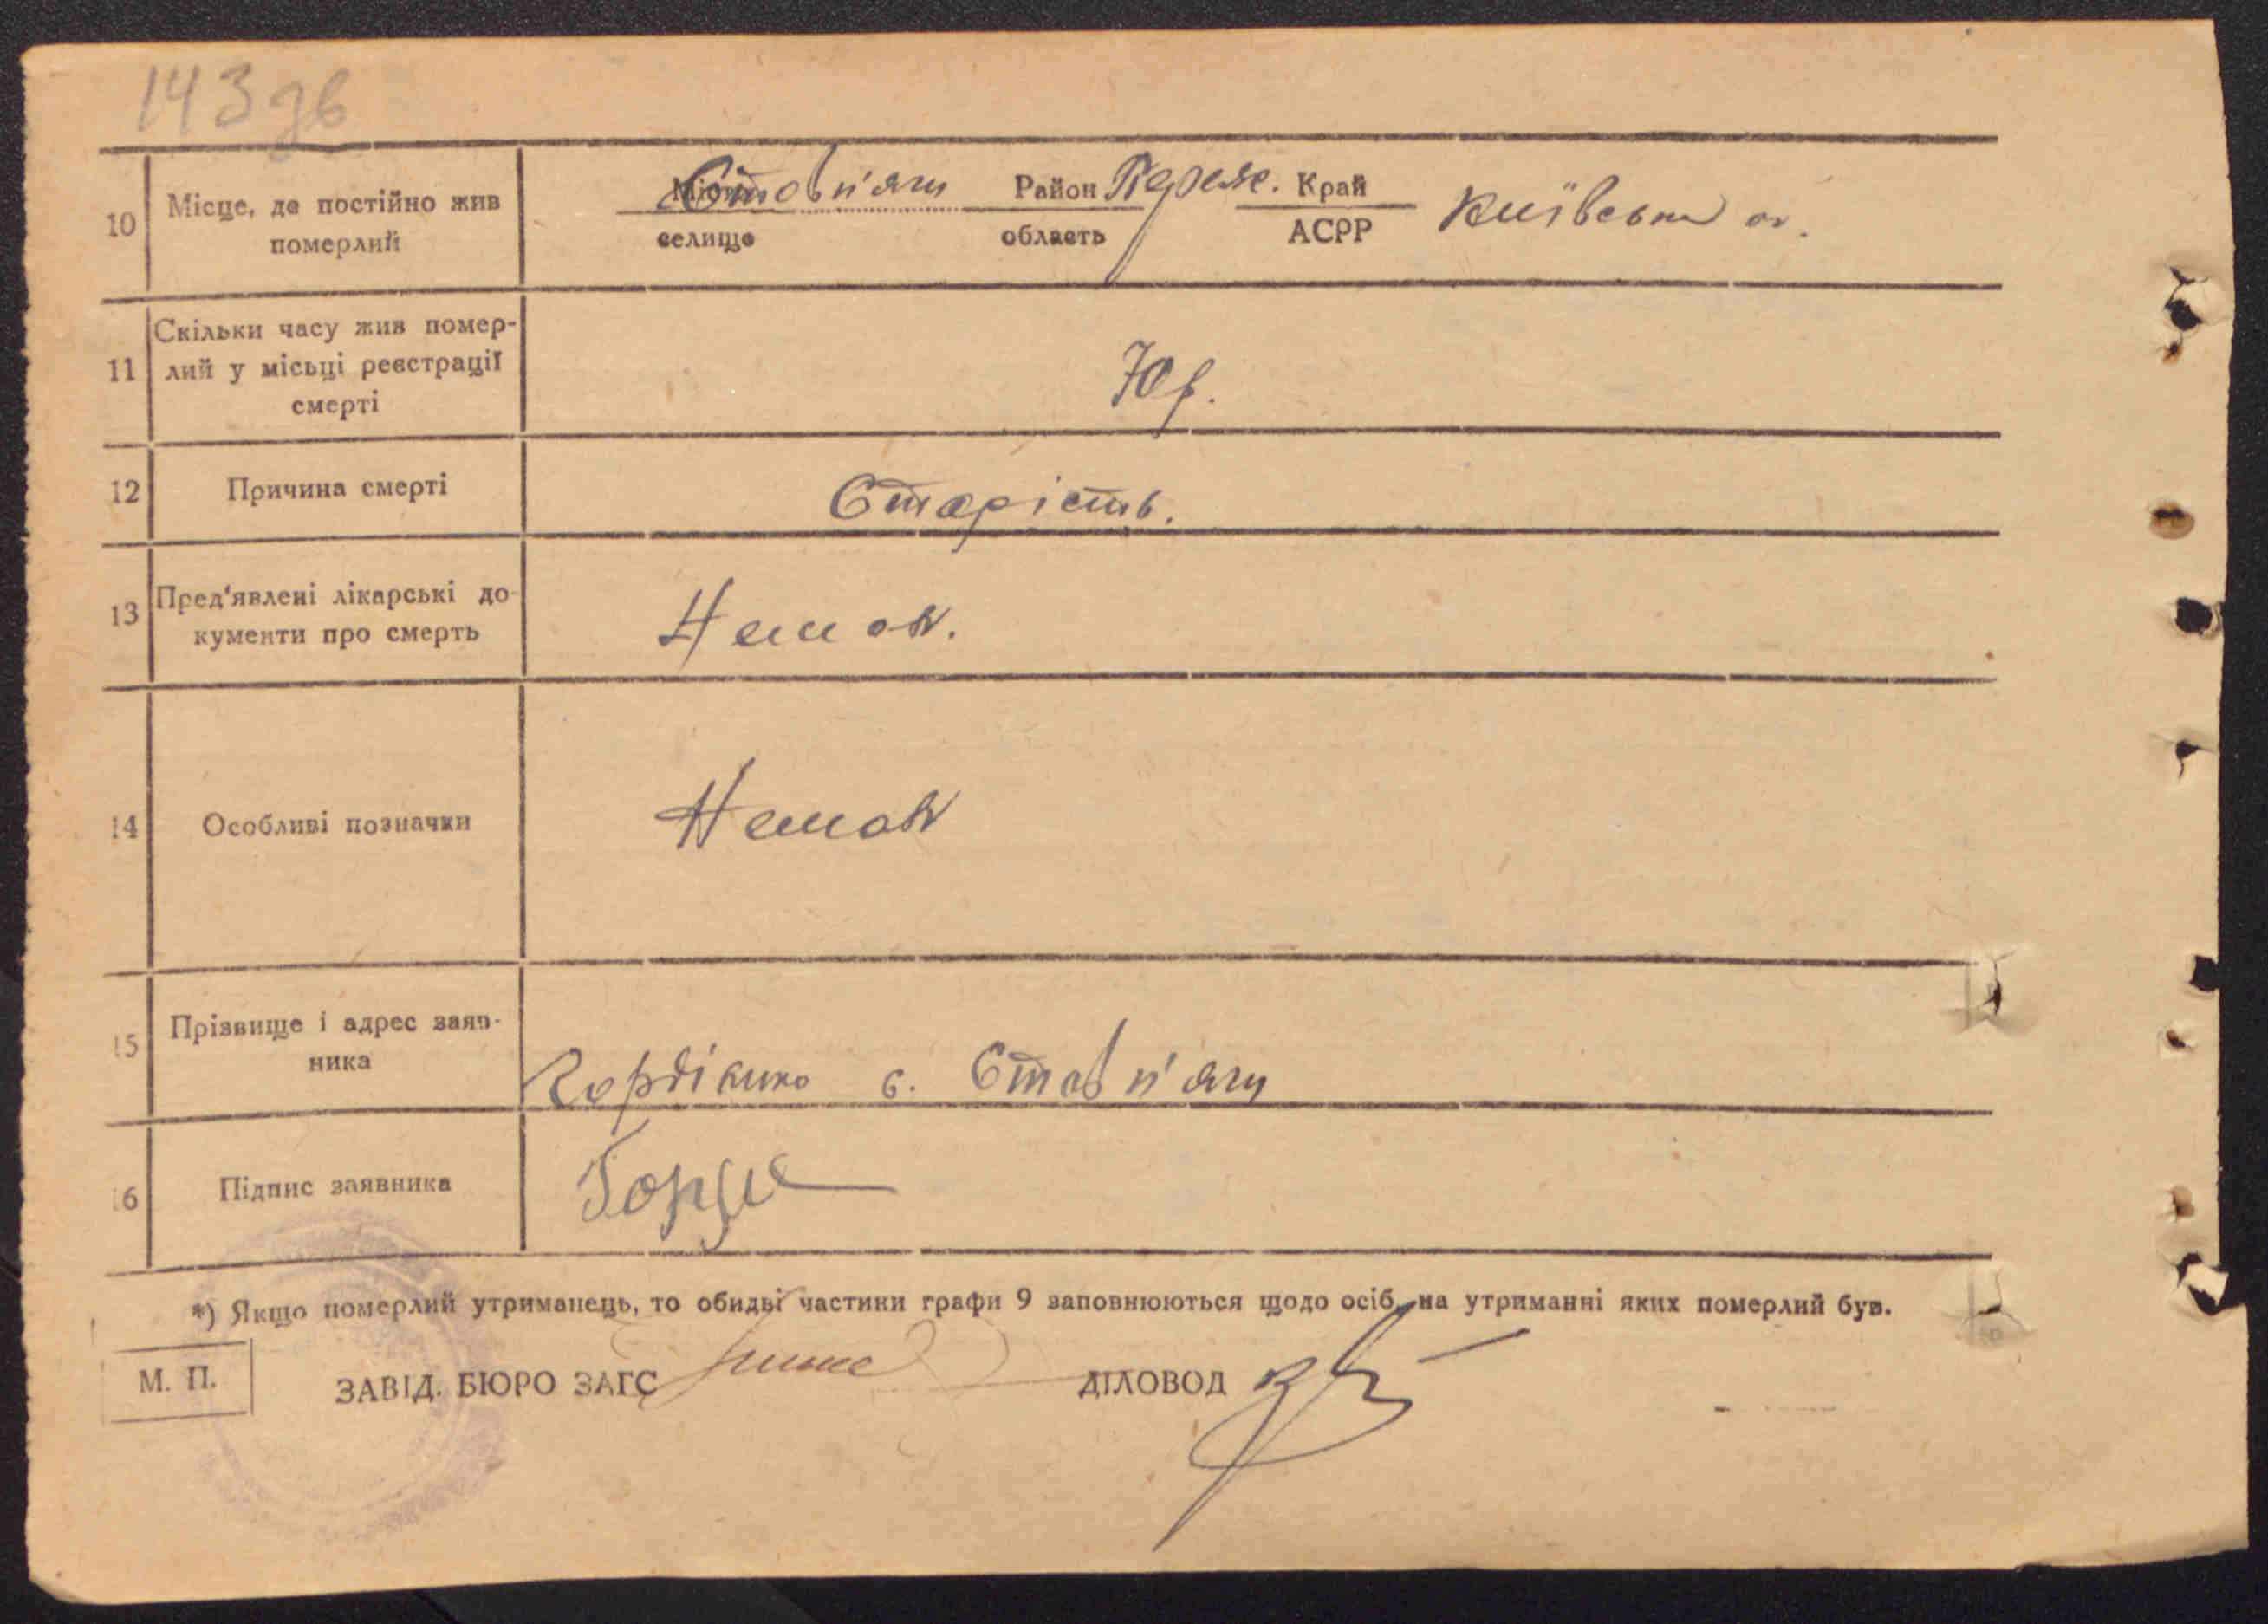 143 зв
10 Місце, де постійно жив померлий
Місто Стовп'яги Район Переяс. Край Київська об.
селище область АСРР
11 Скільки часу жив помер-
лий у місьці реєстрації
смерті
70 р.
12 Причина смерті Старість.
13 Пред'явлені лікарські до-
кументи про смерть
Немає.
14 Особливі позначки Немає
15 Прізвище і адрес заяв-
ника
с. Стовп'яги
16 Підпис заявника
*) Якщо померлий утриманець, то обидві частини графи 9 заповнюються щодо осіб, на утриманні яких померлий був.
М. П. ЗАВІД. БЮРО ЗАГС ДІЛОВОД